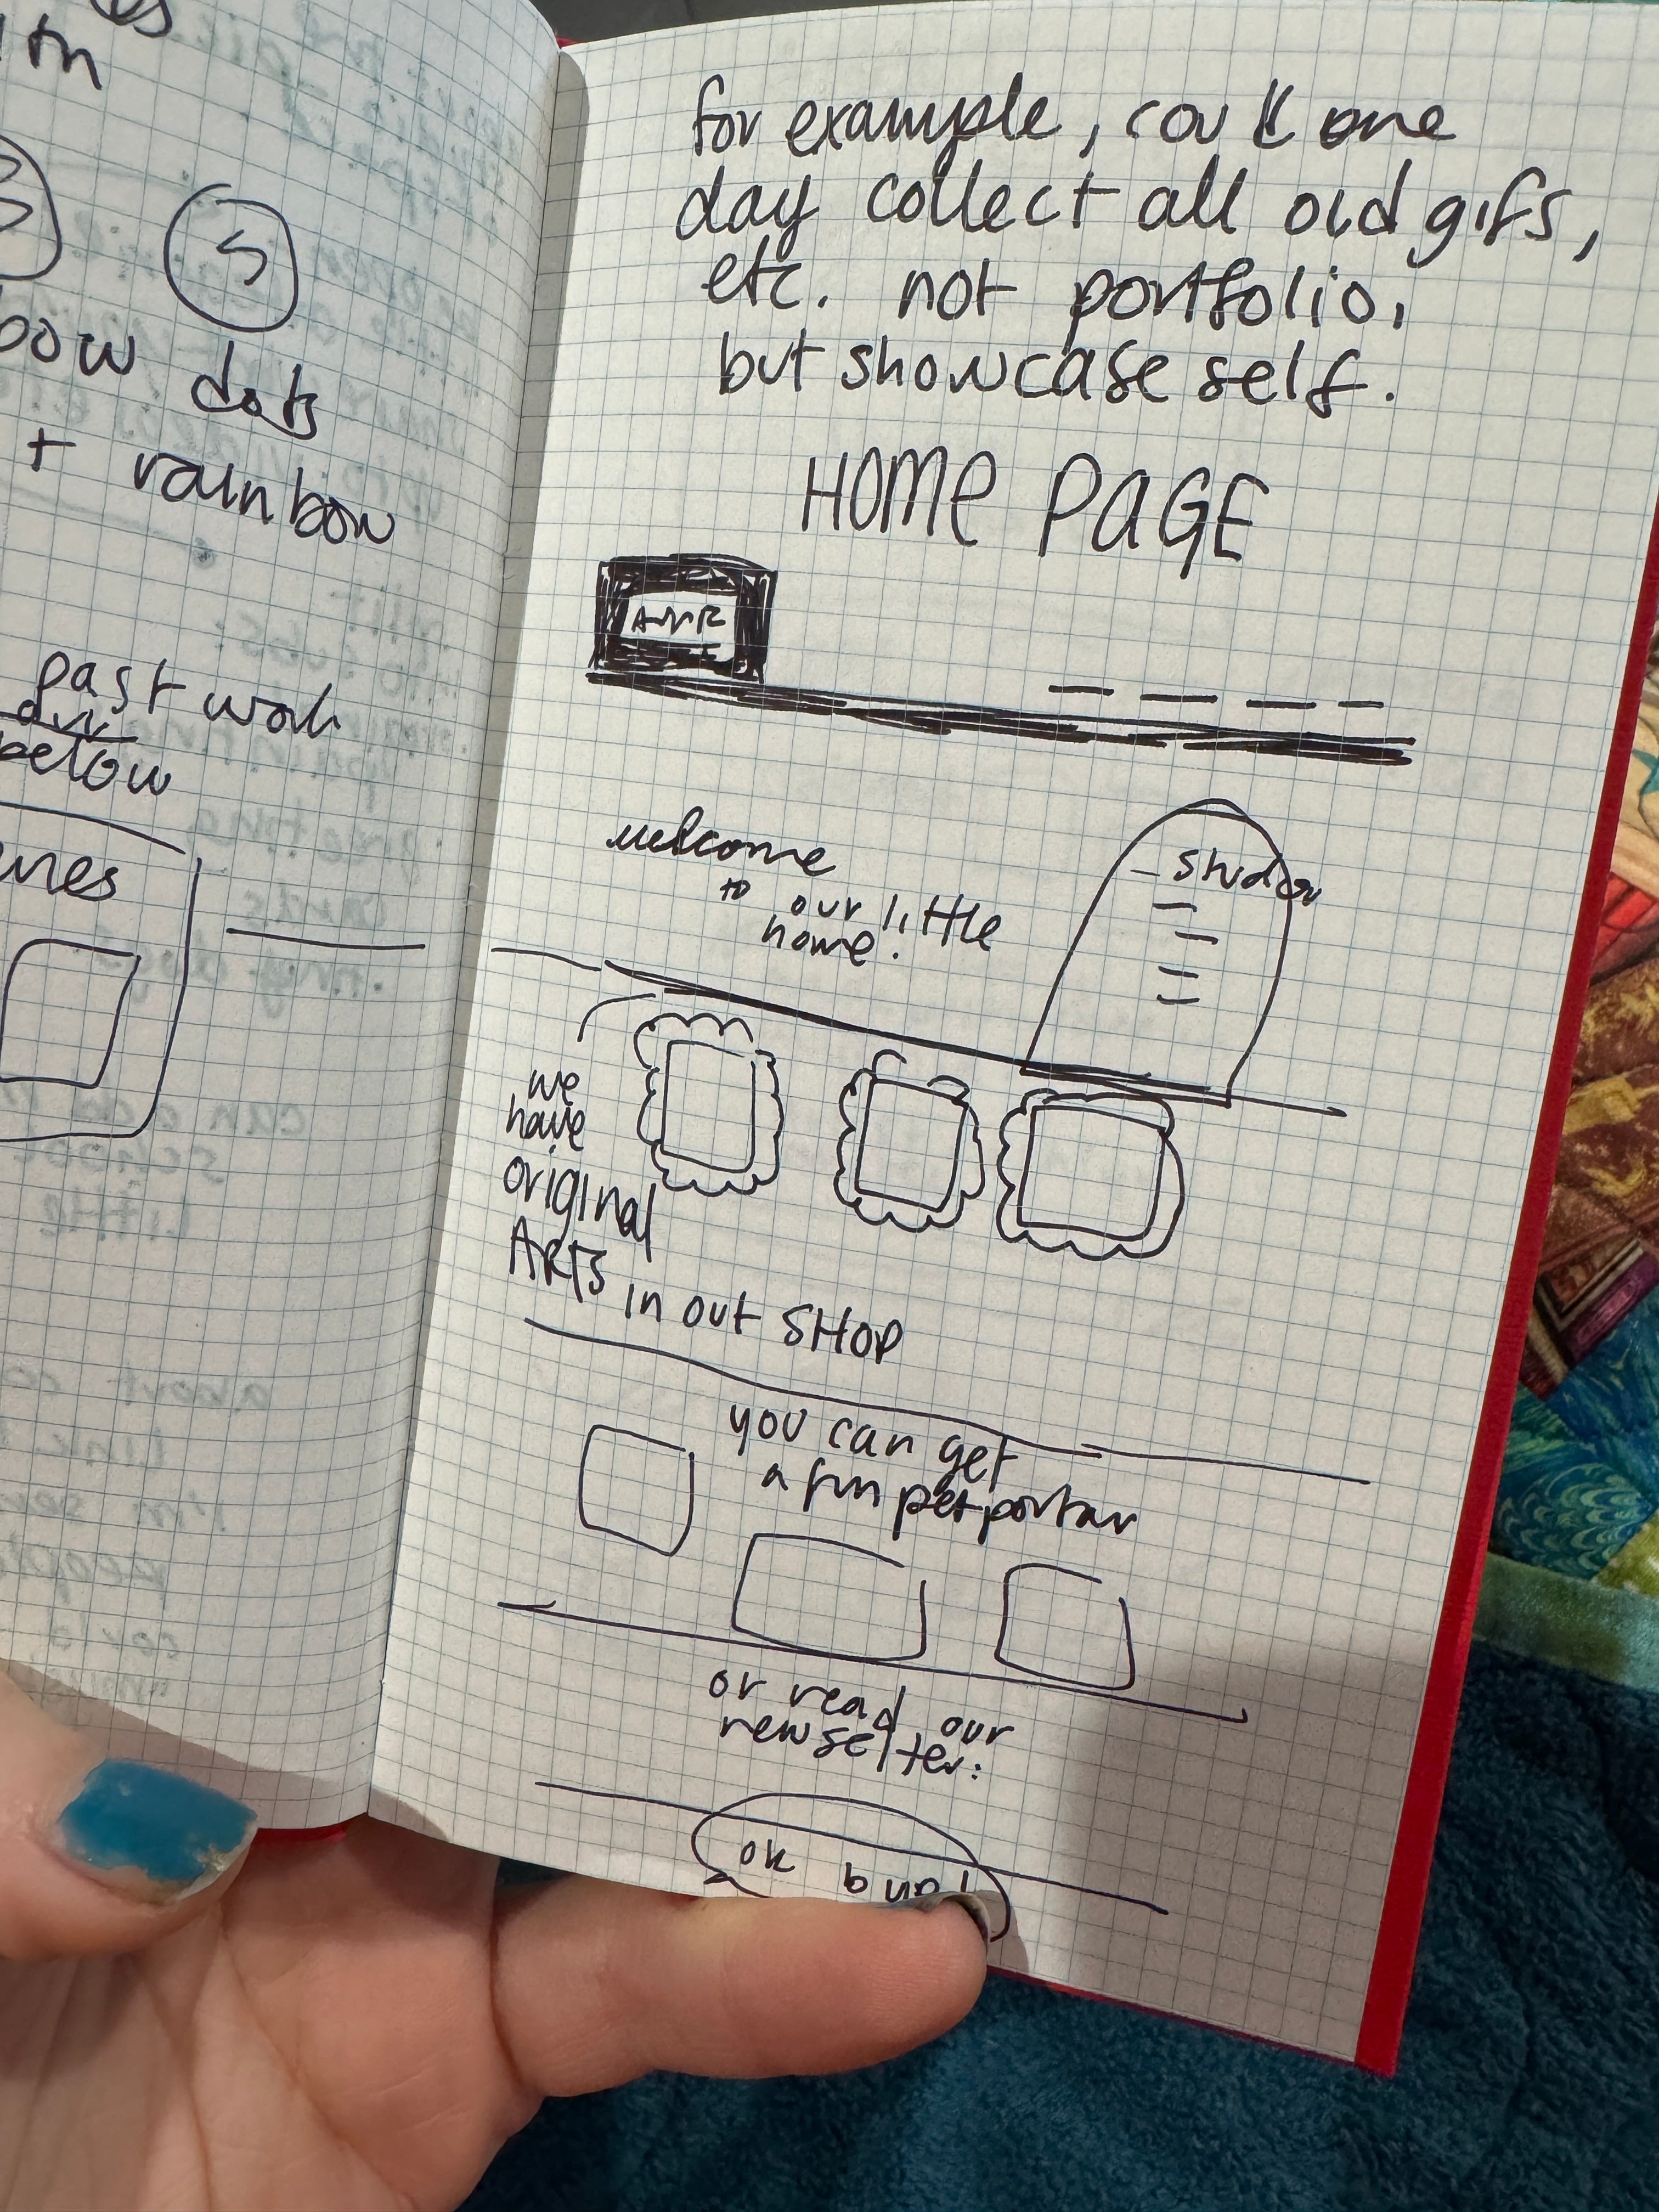 es
th
S
bow dots
+ rainbow
past work
below
for example, could one
day collect all old gifs,
etc. not portfolio,
but showcase self.
HOME PAGE
welcome
to our little
home!
we
have
original
ARTS in out SHOP
you can get
a fun pet
or read our
newselter:
ok bye!